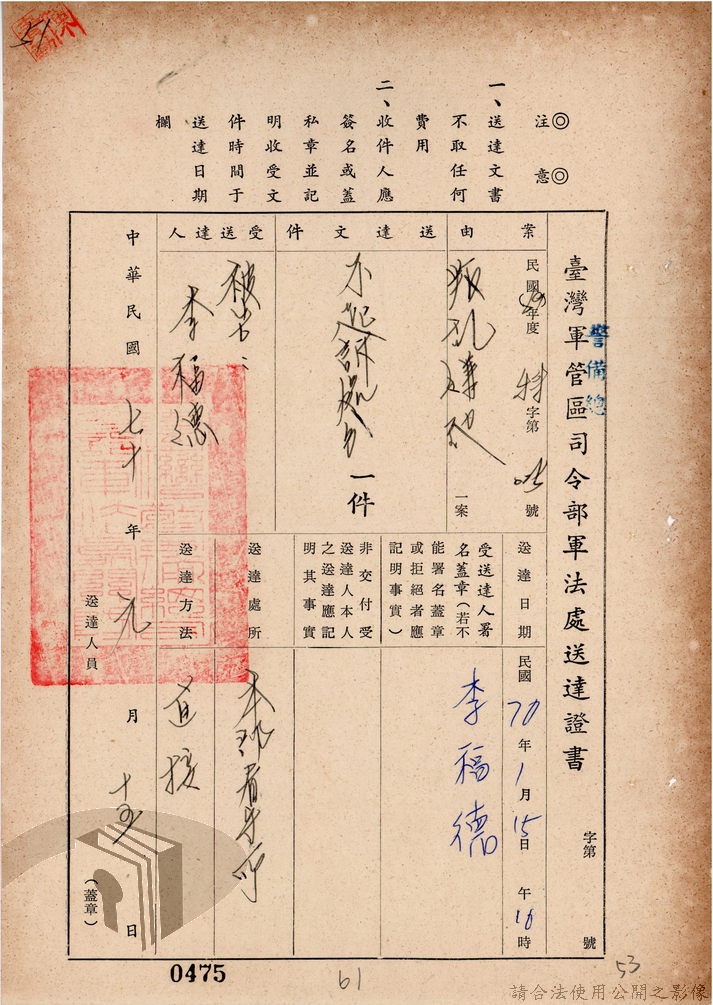 51
◎注意◎
一、送達文書
不取任何
費用
二、收件人應
簽名或蓋
私章並記
明收受文
件時間于
送達日期
欄
臺灣軍管區司令部軍法處送達證書
字第
號
警備總
案由
民國
年度
特
字第
號
叛亂嫌疑
一案
送達文件
不起訴處分
一件
受送達人
被告
李福德
送達日期
民國70年1月15日
午10時
受送達人署
名蓋章(若不
能署名蓋章
或拒絕者應
記明事實)
李福德
非交付受
送達人本人
之送達應記
明其事實
送達處所
本部看守所
送達方法
直接
中華民國七十年元月十五日
送達人員
(蓋章)
0475
61
53
請合法使用公開之影像